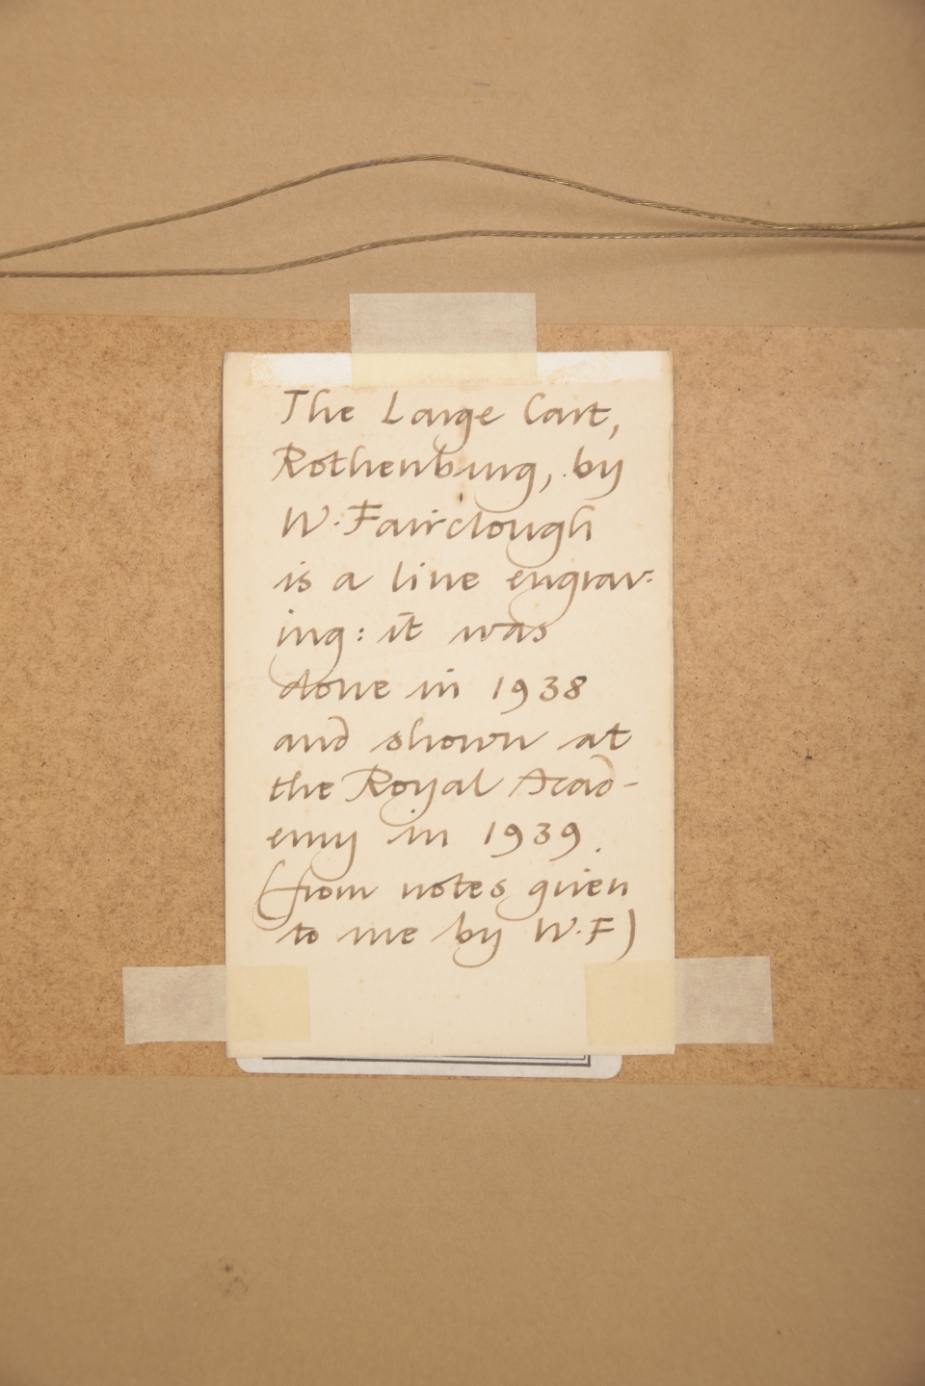 The Large Cart,
Rothenburg, by
W. Fairclough
is a line engrav-
ing: it was
done in 1938
and shown at
the Royal Acad-
emy in 1939.
(from notes given
to me by W.F)